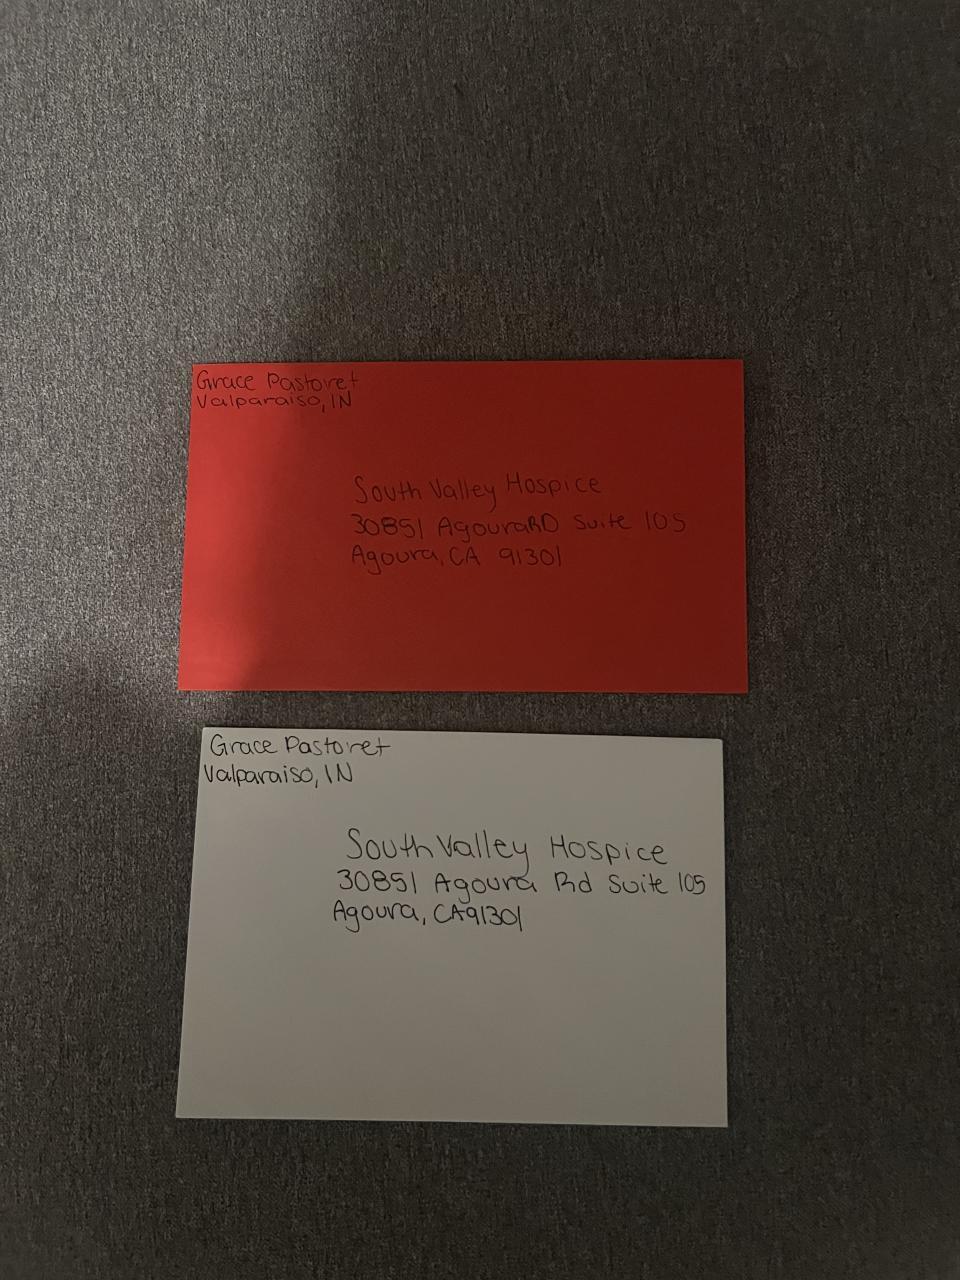 Grace Pastoret
Valparaiso, IN
South Valley Hospice
30851 Agoura RD Suite 105
Agoura, CA 91301
Grace Pastoret
Valparaiso, IN
South Valley Hospice
30851 Agoura Rd Suite 105
Agoura, CA 91301